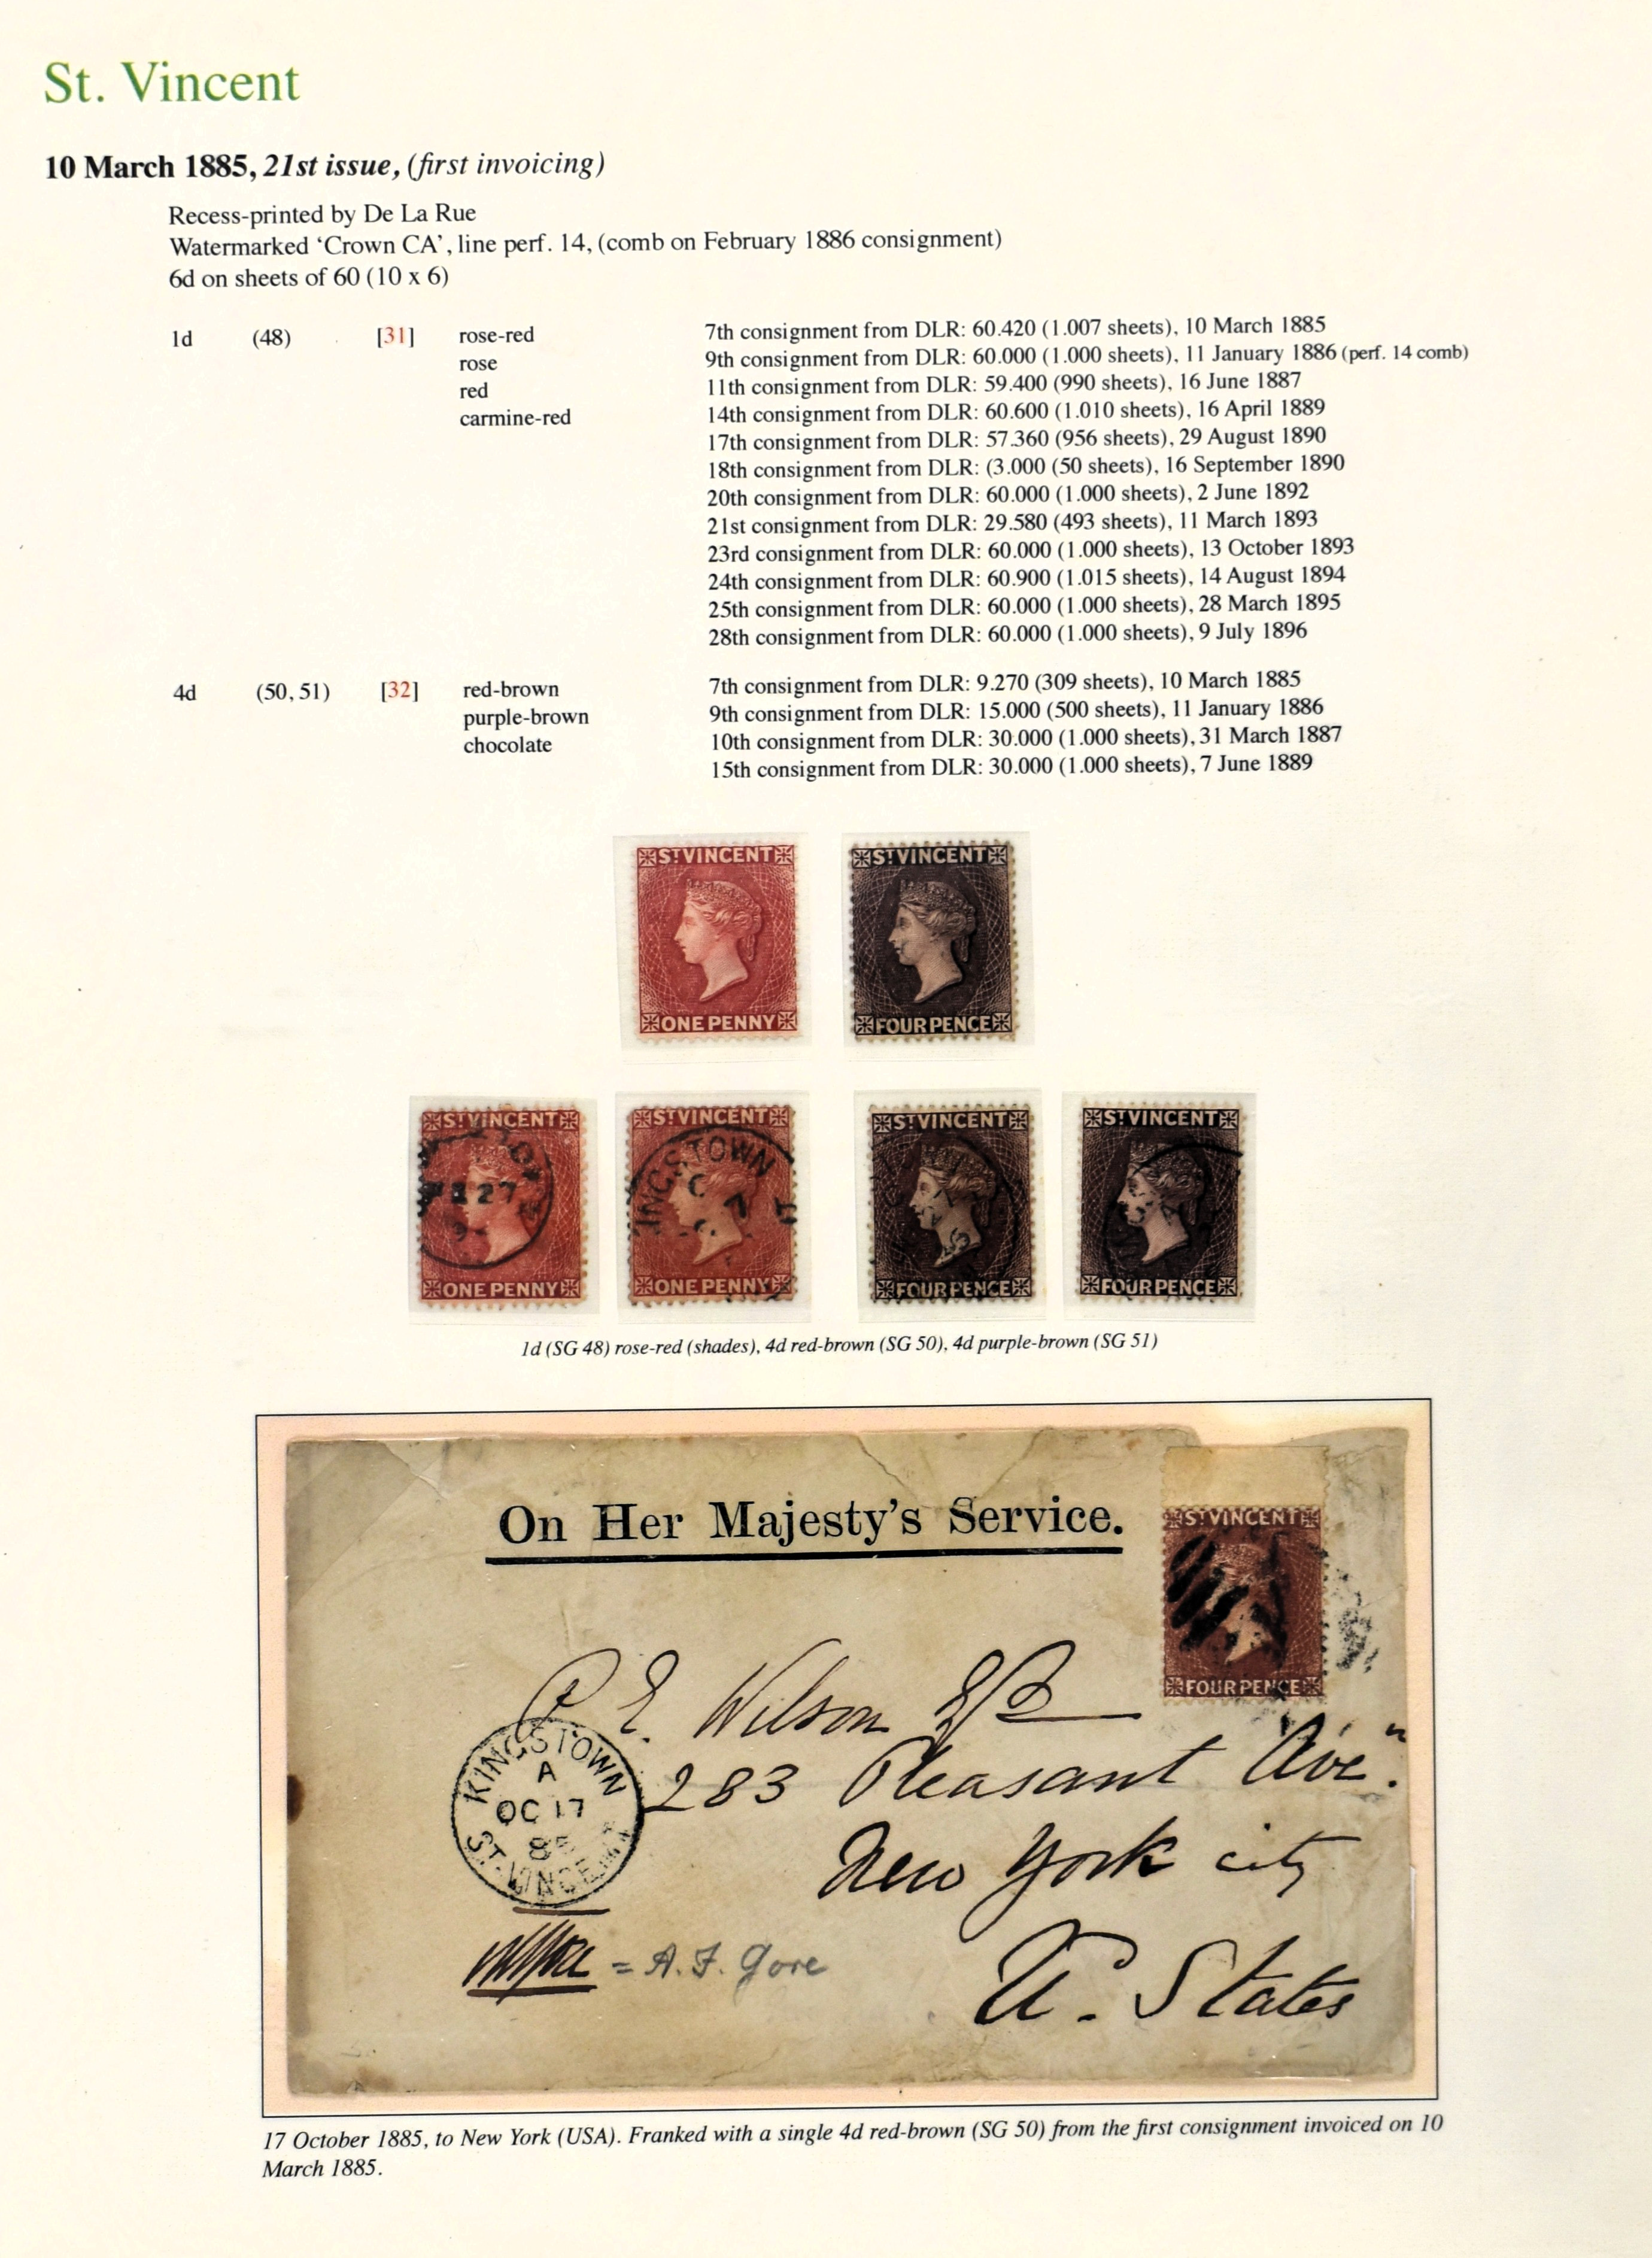 St. Vincent
10 March 1885, 21st issue, (first invoicing)
Recess-printed by De La Rue
Watermarked ‘Crown CA’, line perf. 14, (comb on February 1886 consignment)
6d on sheets of 60 (10 x 6)
1d (48) [31] rose-red 7th consignment from DLR: 60.420 (1.007 sheets), 10 March 1885
rose 9th consignment from DLR: 60.000 (1.000 sheets), 11 January 1886 (perf. 14 comb)
red 11th consignment from DLR: 59.400 (990 sheets), 16 June 1887
carmine-red 14th consignment from DLR: 60.600 (1.010 sheets), 16 April 1889
17th consignment from DLR: 57.360 (956 sheets), 29 August 1890
18th consignment from DLR: (3.000 (50 sheets), 16 September 1890
20th consignment from DLR: 60.000 (1.000 sheets), 2 June 1892
21st consignment from DLR: 29.580 (493 sheets), 11 March 1893
23rd consignment from DLR: 60.000 (1.000 sheets), 13 October 1893
24th consignment from DLR: 60.900 (1.015 sheets), 14 August 1894
25th consignment from DLR: 60.000 (1.000 sheets), 28 March 1895
28th consignment from DLR: 60.000 (1.000 sheets), 9 July 1896
4d (50, 51) [32] red-brown 7th consignment from DLR: 9.270 (309 sheets), 10 March 1885
purple-brown 9th consignment from DLR: 15.000 (500 sheets), 11 January 1886
chocolate 10th consignment from DLR: 30.000 (1.000 sheets), 31 March 1887
15th consignment from DLR: 30.000 (1.000 sheets), 7 June 1889
ST VINCENT ST VINCENT
ONE PENNY FOUR PENCE
ST VINCENT ST VINCENT ST VINCENT ST VINCENT
27 KINGSTOWN
ONE PENNY ONE PENNY FOUR PENCE FOUR PENCE
1d (SG 48) rose-red (shades), 4d red-brown (SG 50), 4d purple-brown (SG 51)
On Her Majesty's Service.
ST VINCENT
FOUR PENCE
E. Wilson
283 Pleasant Ave"
New York city
U. States
KINGSTOWN
A
OC 17
85
ST. VINCENT
= A. F. Gore
17 October 1885, to New York (USA). Franked with a single 4d red-brown (SG 50) from the first consignment invoiced on 10
March 1885.